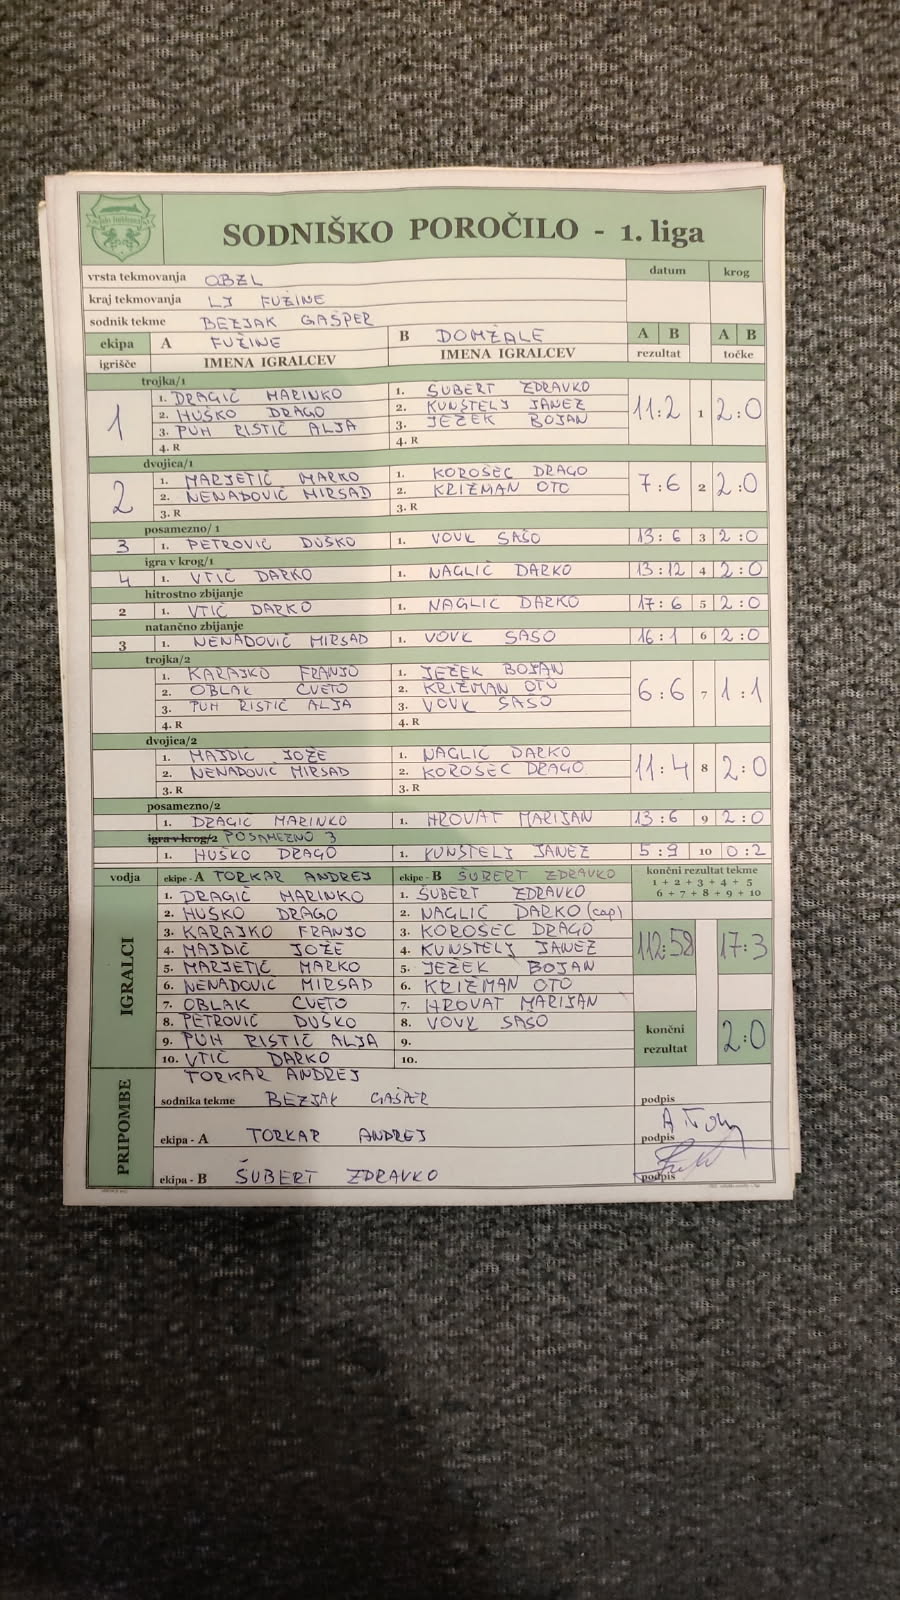 SODNIŠKO POROČILO - 1. liga
vrsta tekmovanja OBZL datum krog
kraj tekmovanja LJ FUŽINE
sodnik tekme BEZJAK GAŠPER
ekipa A FUŽINE B DOMŽALE A B A B
igrišče IMENA IGRALCEV IMENA IGRALCEV rezultat točke
trojka/1
1 1. DRAGIČ MARINKO 1. ŠUBERT ZDRAVKO 11:2 1 2:0
2. HUŠKO DRAGO 2. KUNŠTELJ JANEZ
3. PUH RISTIČ ALJA 3. JEŽEK BOJAN
4. R 4. R
dvojica/1
2 1. MARJETIČ MARKO 1. KOROŠEC DRAGO 7:6 2 2:0
2. NENADOVIČ MIRSAD 2. KRIŽMAN OTO
3. R 3. R
posamezno/ 1
3 1. PETROVIČ DUŠKO 1. VOVK SAŠO 13:6 3 2:0
igra v krog/1
4 1. VTIČ DARKO 1. NAGLIČ DARKO 13:12 4 2:0
hitrostno zbijanje
2 1. VTIČ DARKO 1. NAGLIC DARKO 17:6 5 2:0
natančno zbijanje
3 1. NENADOVIČ MIRSAD 1. VOVK SAŠO 16:1 6 2:0
trojka/2
1. KARAJKO FRANJO 1. JEŽEK BOJAN 6:6 7 1:1
2. OBLAK CVETO 2. KRIŽMAN OTO
3. PUH RISTIČ ALJA 3. VOVK SAŠO
4. R 4. R
dvojica/2
1. MAJDIČ JOŽE 1. NAGLIČ DARKO 11:4 8 2:0
2. NENADOVIČ MIRSAD 2. KOROŠEC DRAGO
3. R 3. R
posamezno/2
1. DRAGIČ MARINKO 1. HROVAT MARIJAN 13:6 9 2:0
igra v krog/2 POSAMEZNO 3
1. HUŠKO DRAGO 1. KUNŠTELJ JANEZ 5:9 10 0:2
vodja ekipe - A TORKAR ANDREJ ekipe - B ŠUBERT ZDRAVKO končni rezultat tekme
1 + 2 + 3 + 4 + 5
6 + 7 + 8 + 9 + 10
IGRALCI
1. DRAGIČ MARINKO 1. ŠUBERT ZDRAVKO
2. HUŠKO DRAGO 2. NAGLIČ DARKO (cap)
3. KARAJKO FRANJO 3. KOROŠEC DRAGO
4. MAJDIČ JOŽE 4. KUNŠTELJ JANEZ 112:58 17:3
5. MARJETIČ MARKO 5. JEŽEK BOJAN
6. NENADOVIČ MIRSAD 6. KRIŽMAN OTO
7. OBLAK CVETO 7. HROVAT MARIJAN
8. PETROVIČ DUŠKO 8. VOVK SAŠO končni rezultat 2:0
9. PUH RISTIČ ALJA 9.
10. VTIČ DARKO 10.
PRIPOMBE
TORKAR ANDREJ
sodnika tekme BEZJAK GAŠPER podpis
ekipa - A TORKAR ANDREJ podpis
ekipa - B ŠUBERT ZDRAVKO podpis